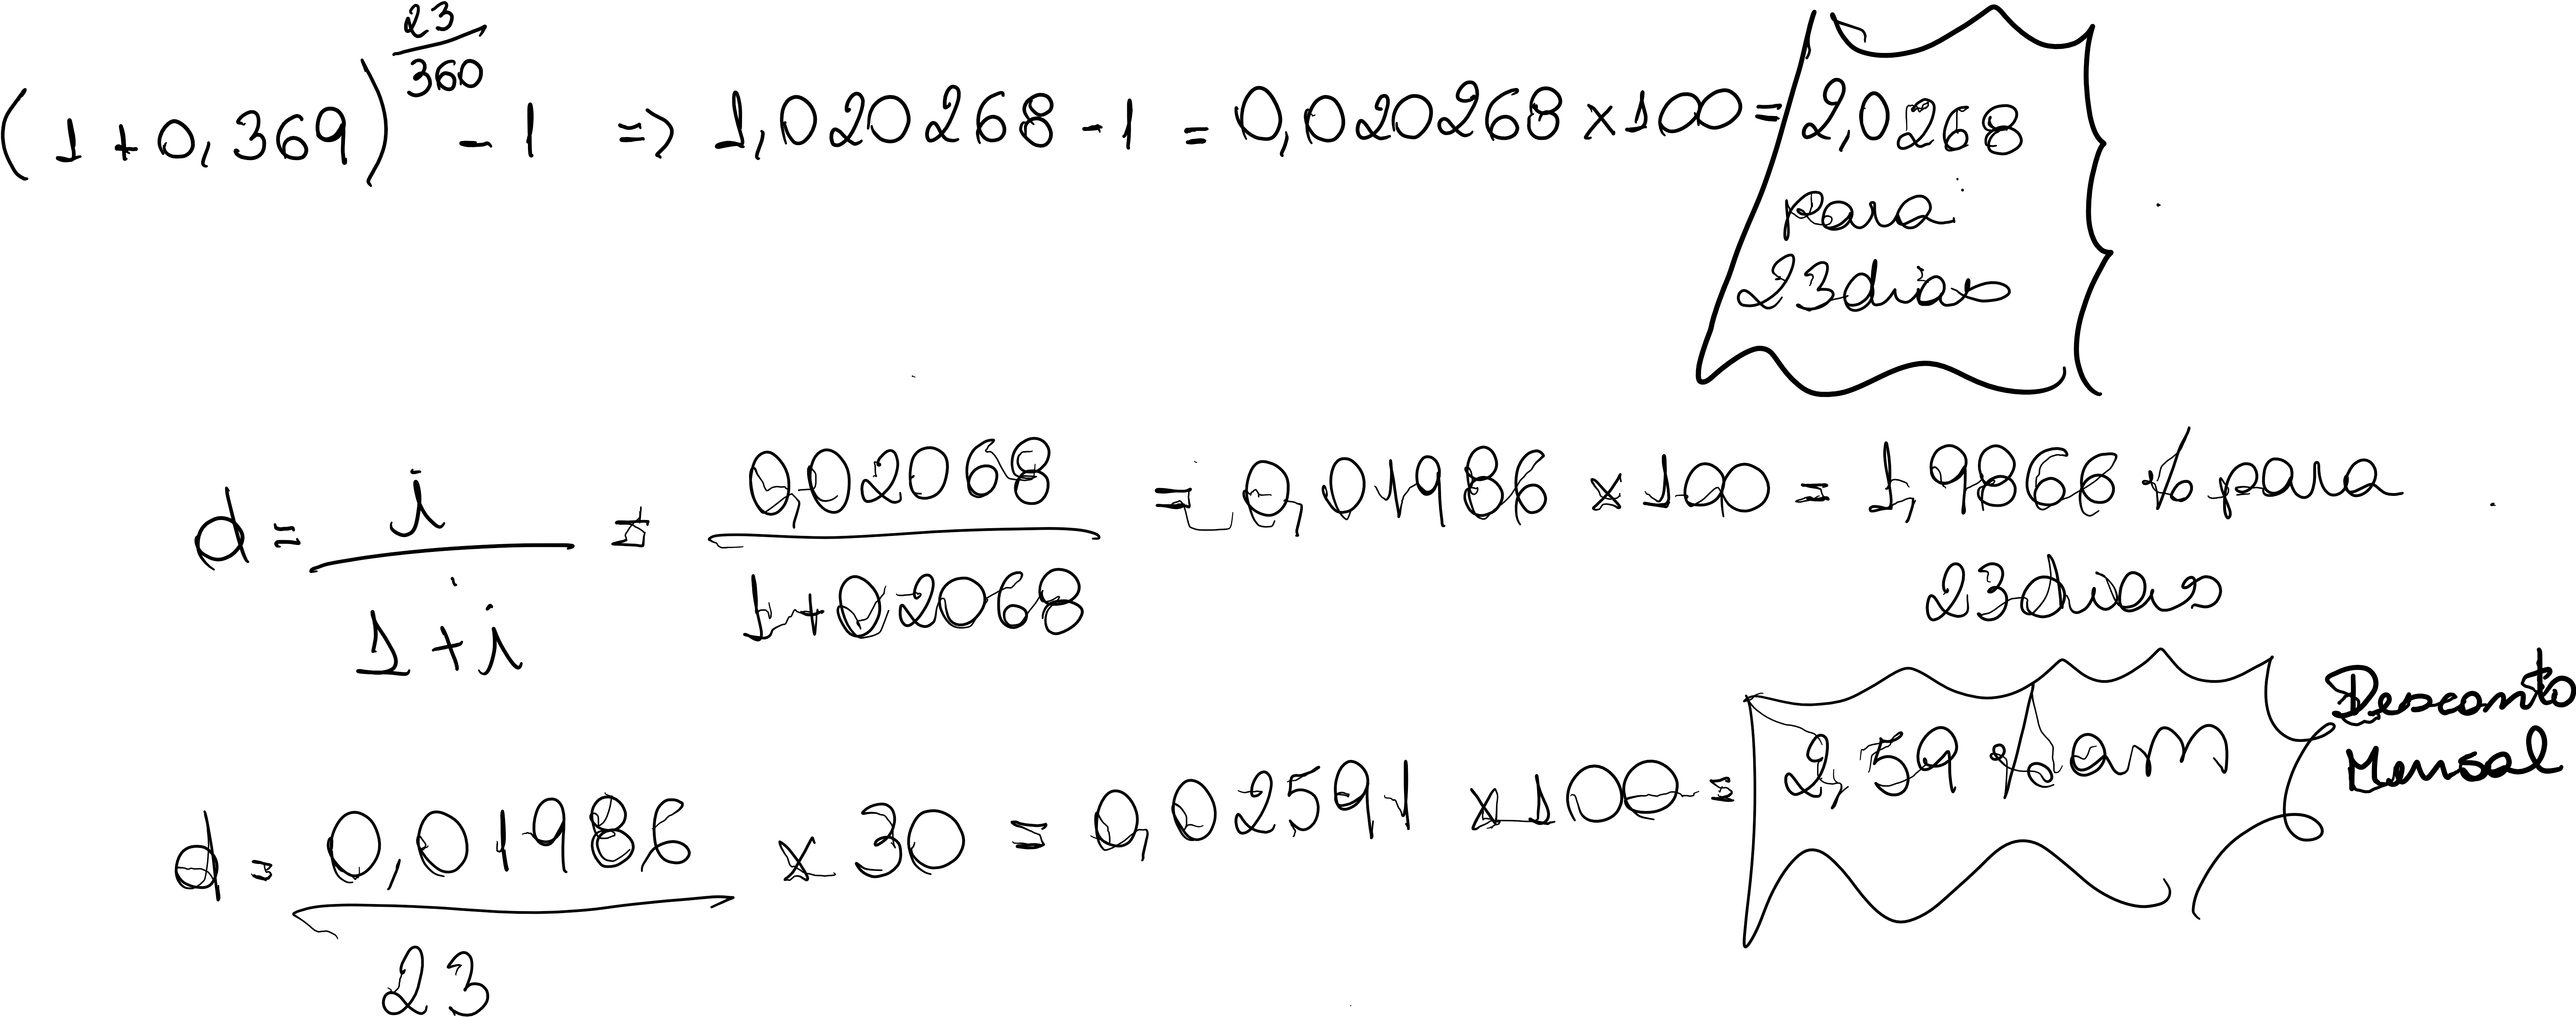 (1 + 0,369)^(23/360) - 1 => 1,020268 - 1 = 0,020268 x 100 = 2,0268
para
23 dias
d = i / (1 + i) = 0,02068 / (1 + 0,2068) = 0,01986 x 100 = 1,9866 % para
23 dias
d = 0,01986 / 23 x 30 = 0,02591 x 100 = 2,59 % am
Desconto
Mensal